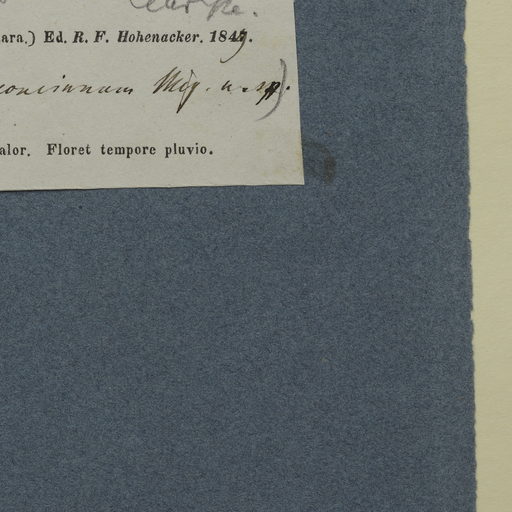 ara.) Ed. R. F. Hohenacker. 1847.
concinnum Miq. n. sp.)
alor. Floret tempore pluvio.